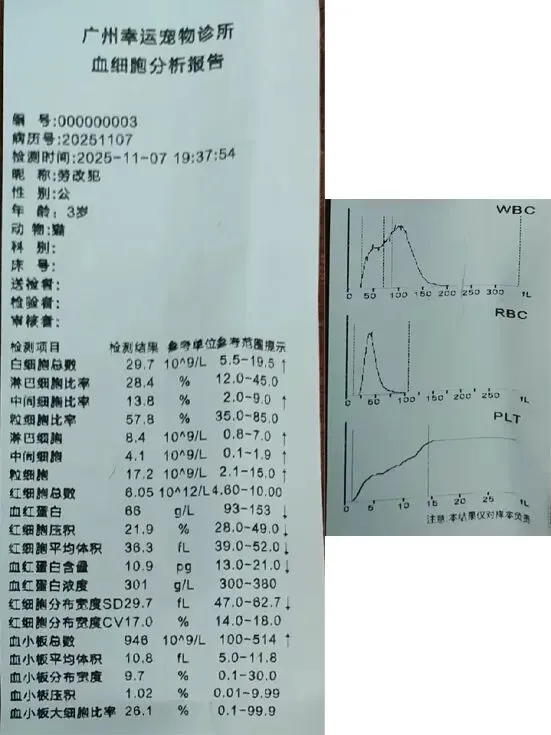 广州幸运宠物诊所
血细胞分析报告
编 号:000000003
病历号:20251107
检测时间:2025-11-07 19:37:54
昵 称:劳改犯
性 别:公
年 龄: 3岁
动 物:猫
科 别:
床 号:
送检者:
检验者:
审核者:
检测项目 检测结果 参考单位参考范围提示
白细胞总数 29.7 10^9/L 5.5-19.5 ↑
淋巴细胞比率 28.4 % 12.0-45.0
中间细胞比率 13.8 % 2.0-9.0 ↑
粒细胞比率 57.8 % 35.0-85.0
淋巴细胞 8.4 10^9/L 0.8-7.0 ↑
中间细胞 4.1 10^9/L 0.1-1.9 ↑
粒细胞 17.2 10^9/L 2.1-15.0 ↑
红细胞总数 6.05 10^12/L 4.60-10.00
血红蛋白 66 g/L 93-153 ↓
红细胞压积 21.9 % 28.0-49.0 ↓
红细胞平均体积 36.3 fL 39.0-52.0 ↓
血红蛋白含量 10.9 pg 13.0-21.0 ↓
血红蛋白浓度 301 g/L 300-380
红细胞分布宽度SD29.7 fL 47.0-62.7 ↓
红细胞分布宽度CV17.0 % 14.0-18.0
血小板总数 946 10^9/L 100-514 ↑
血小板平均体积 10.8 fL 5.0-11.8
血小板分布宽度 9.7 % 0.1-30.0
血小板压积 1.02 % 0.01-9.99
血小板大细胞比率 26.1 % 0.1-99.9
WBC
0 50 100 150 200 250 300 fL
RBC
0 50 100 150 200 250 fL
PLT
0 5 10 15 20 25 fL
注意:本结果仅对样本负责